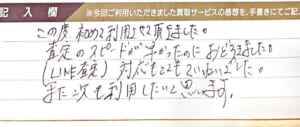 記入欄 ※今回ご利用いただきました買取サービスの感想を、手書きにてご記
この度、初めて利用させて頂きました。
査定のスピードが早かったのにおどろきました。
(LINE査定) 対応もとてもていねいでした。
また次も利用したいと思います。